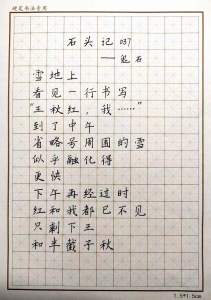 硬笔书法专用
石头记 037
——短石
雪地上
看见一行书写
“王秋红，我……”
到了中午
省略号周围的雪
似乎融化得
更快
下午再经过时
红和我都已不见
只剩下王
和半截子秋
1.5*1.5cm